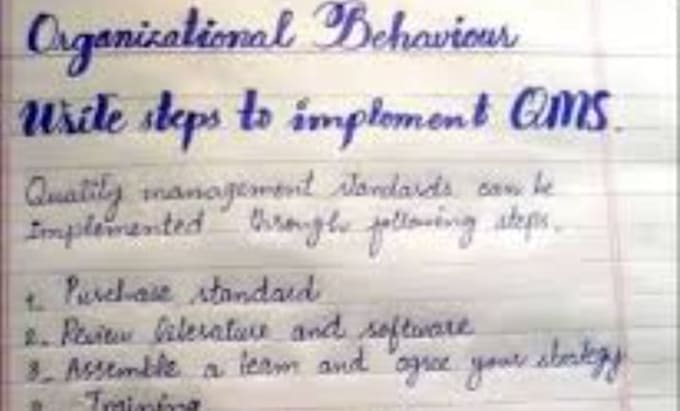 Organizational Behaviour
Write steps to implement QMS.
Quality management standards can be
implemented through following steps.
1. Purchase standard
2. Review literature and software
3. Assemble a team and agree your strategy
Training